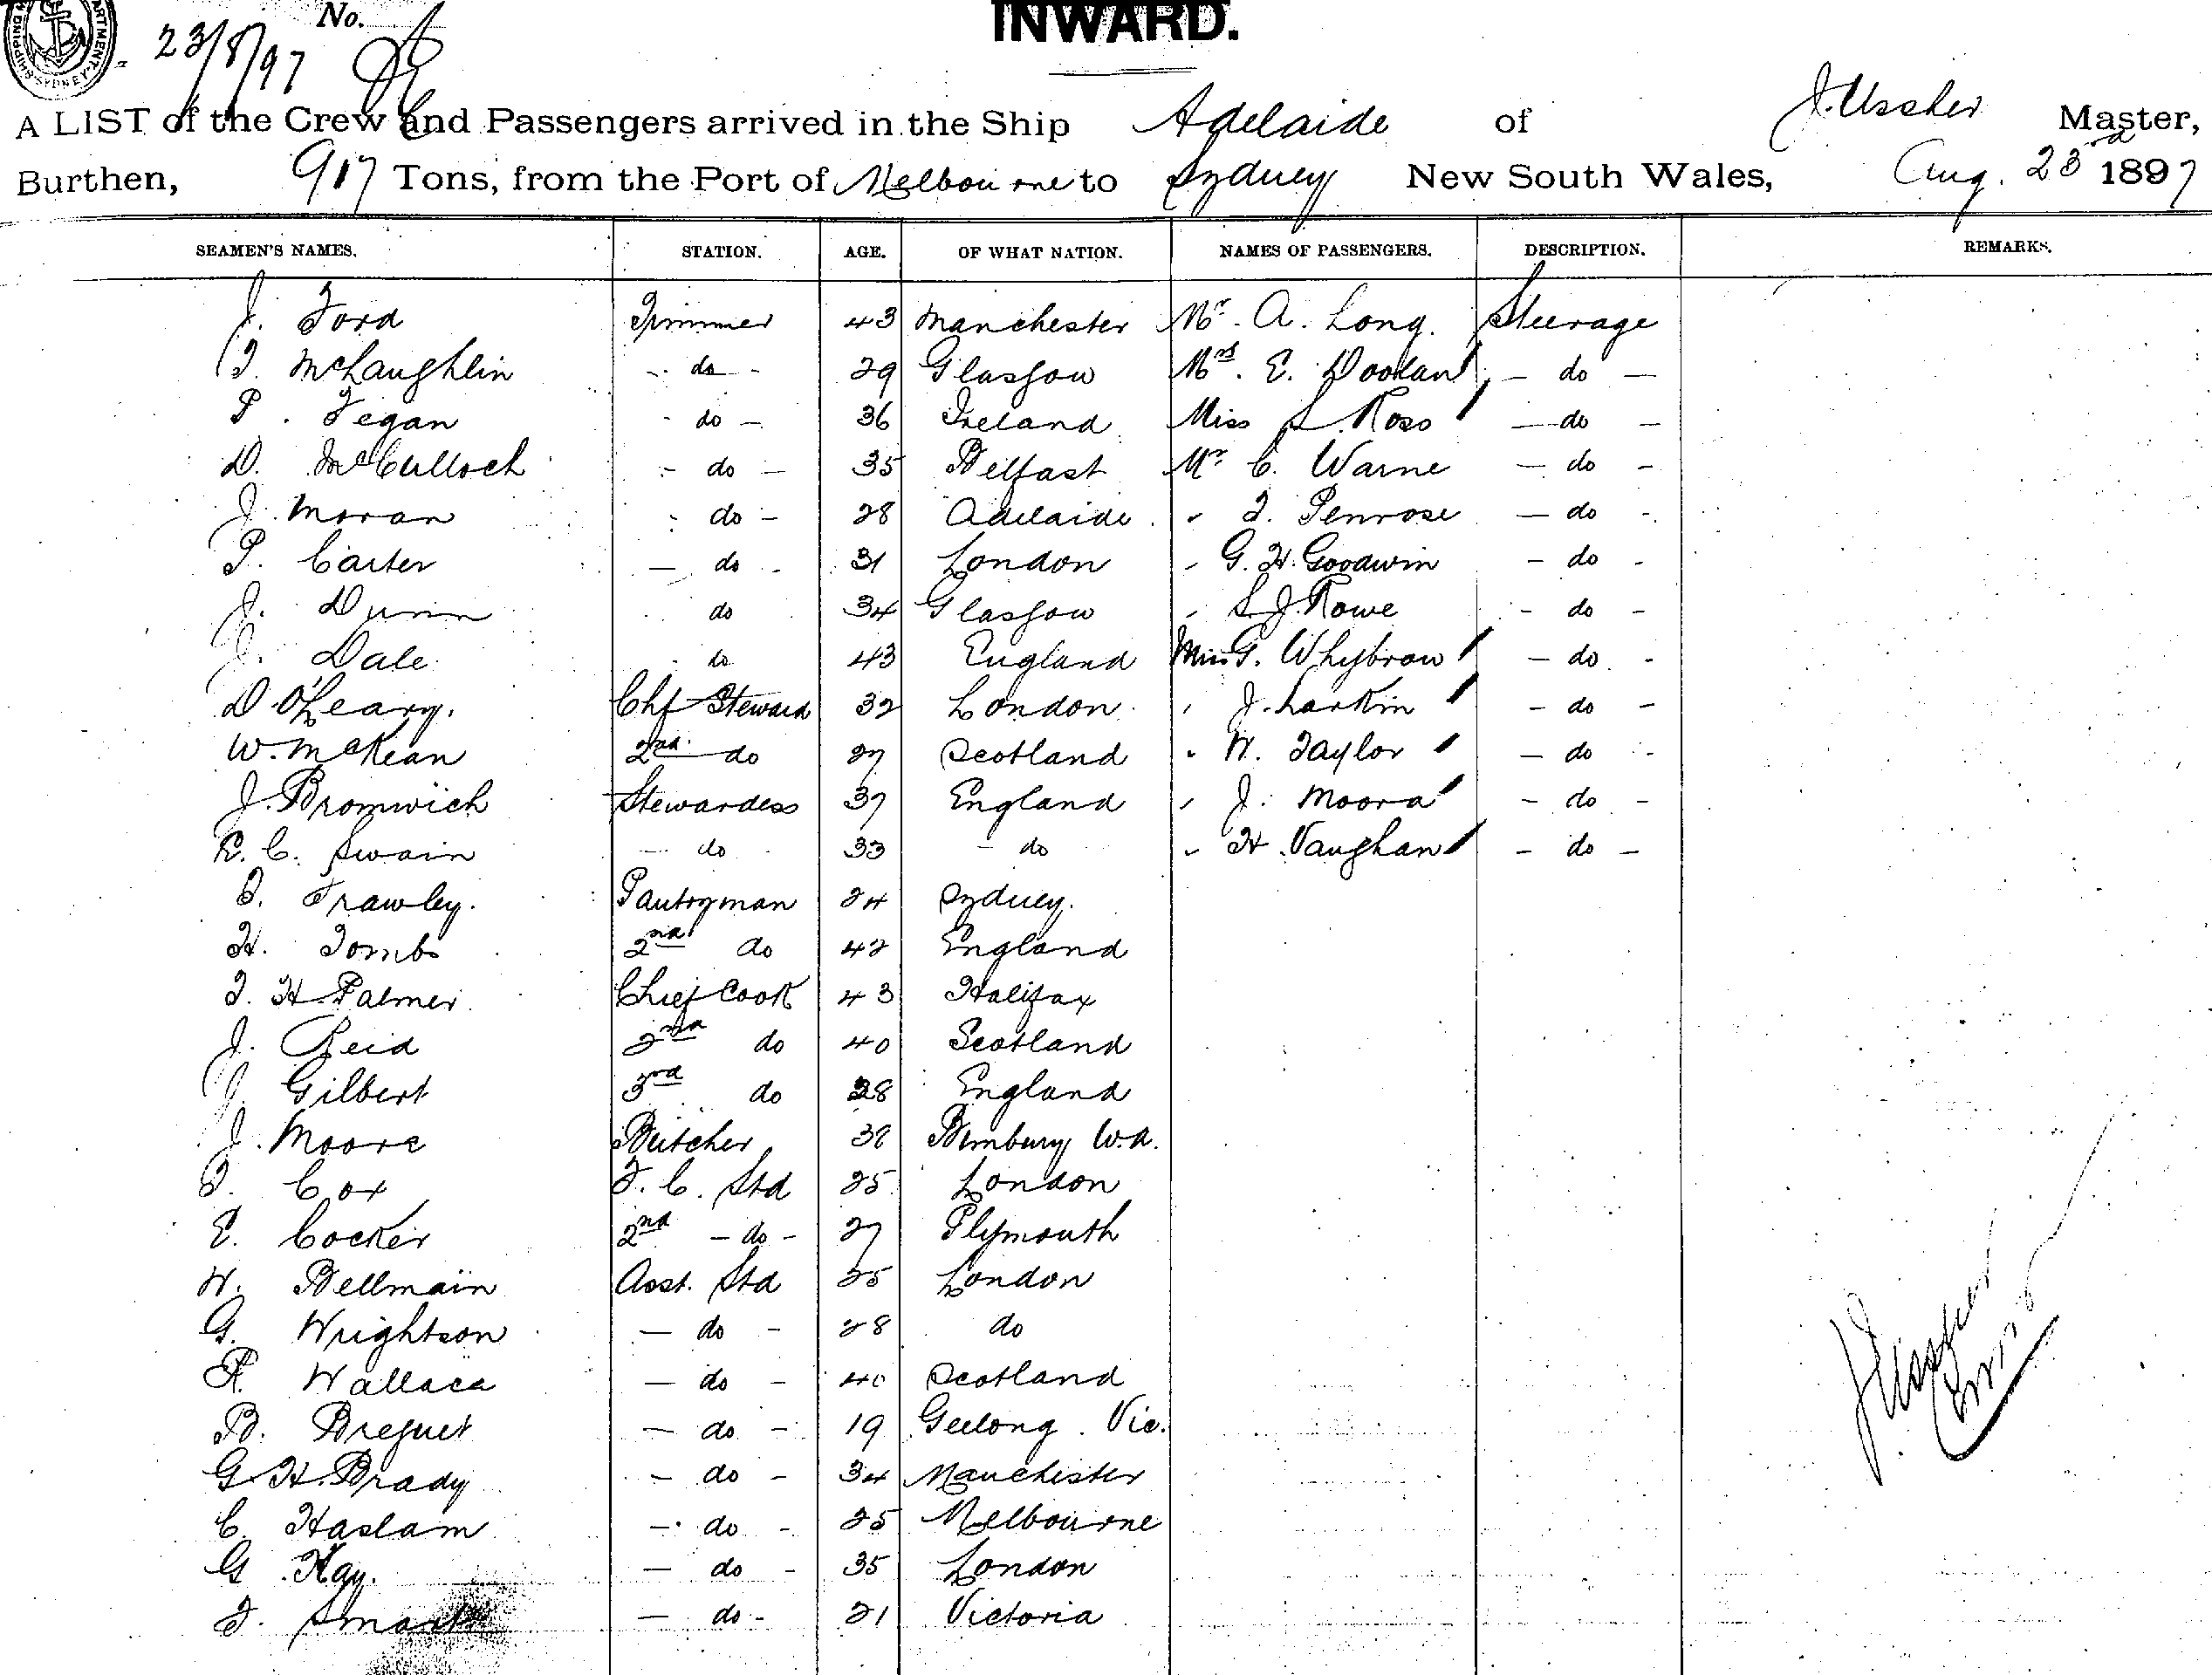 No.
INWARD.
23/8/97
A LIST of the Crew and Passengers arrived in the Ship Adelaide of J. Ussher Master,
Burthen, 917 Tons, from the Port of Melbourne to Sydney New South Wales, Aug. 23rd 1897
SEAMEN'S NAMES. STATION. AGE. OF WHAT NATION. NAMES OF PASSENGERS. DESCRIPTION. REMARKS.
J. Ford Trimmer 43 Manchester Mr. A. Long. Steerage
T. McLaughlin - do - 29 Glasgow Mrs. E. Doolan - do -
P. Fegan - do - 36 Ireland Miss L. Ross - do -
D. McCulloch - do - 35 Belfast Mr C. Warne - do -
J. Moran - do - 28 Adelaide " T. Penrose - do -
P. Carter - do - 31 London " G. H. Goodwin - do -
J. Dunn do 34 Glasgow " S. J. Rowe - do -
J. Dale do 43 England Miss G. Whybrow - do -
D. O'Leary. Chf Steward 32 London " J. Larkin - do -
W. McKean 2nd do 27 Scotland " W. Taylor - do -
J. Bromwich Stewardess 37 England " J. Moora - do -
E. C. Swain - do 33 - do " H. Vaughan - do -
T. Frawley. Pantryman 24 Sydney.
H. Tombs 2nd do 42 England
T. H. Palmer Chief Cook 43 Halifax
J. Reid 2nd do 40 Scotland
J. Gilbert 3rd do 28 England
J. Moore Butcher Bunbury W.A.
T. Cox F. C. Std 25 London
E. Cocker 2nd - do - 27 Plymouth
W. Bellmain Asst. Std 25 London
G. Wrightson - do - 28 do
R. Wallace - do - 40 Scotland
B. Breguet - do - 19 Geelong. Vic.
G. H. Brady - do - 34 Manchester
C. Haslam - do - 25 Melbourne
G. Hay. - do - 35 London
T. Smart - do - 21 Victoria
J Ussher